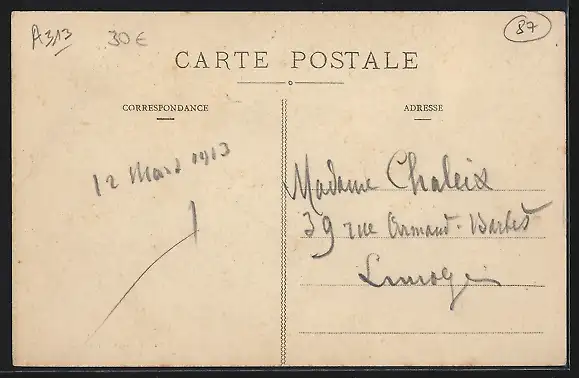 A313 30€ 87
CARTE POSTALE
CORRESPONDANCE
ADRESSE
12 Mars 1913
Madame Chaleix
39 rue Armand-Barbès
Limoges